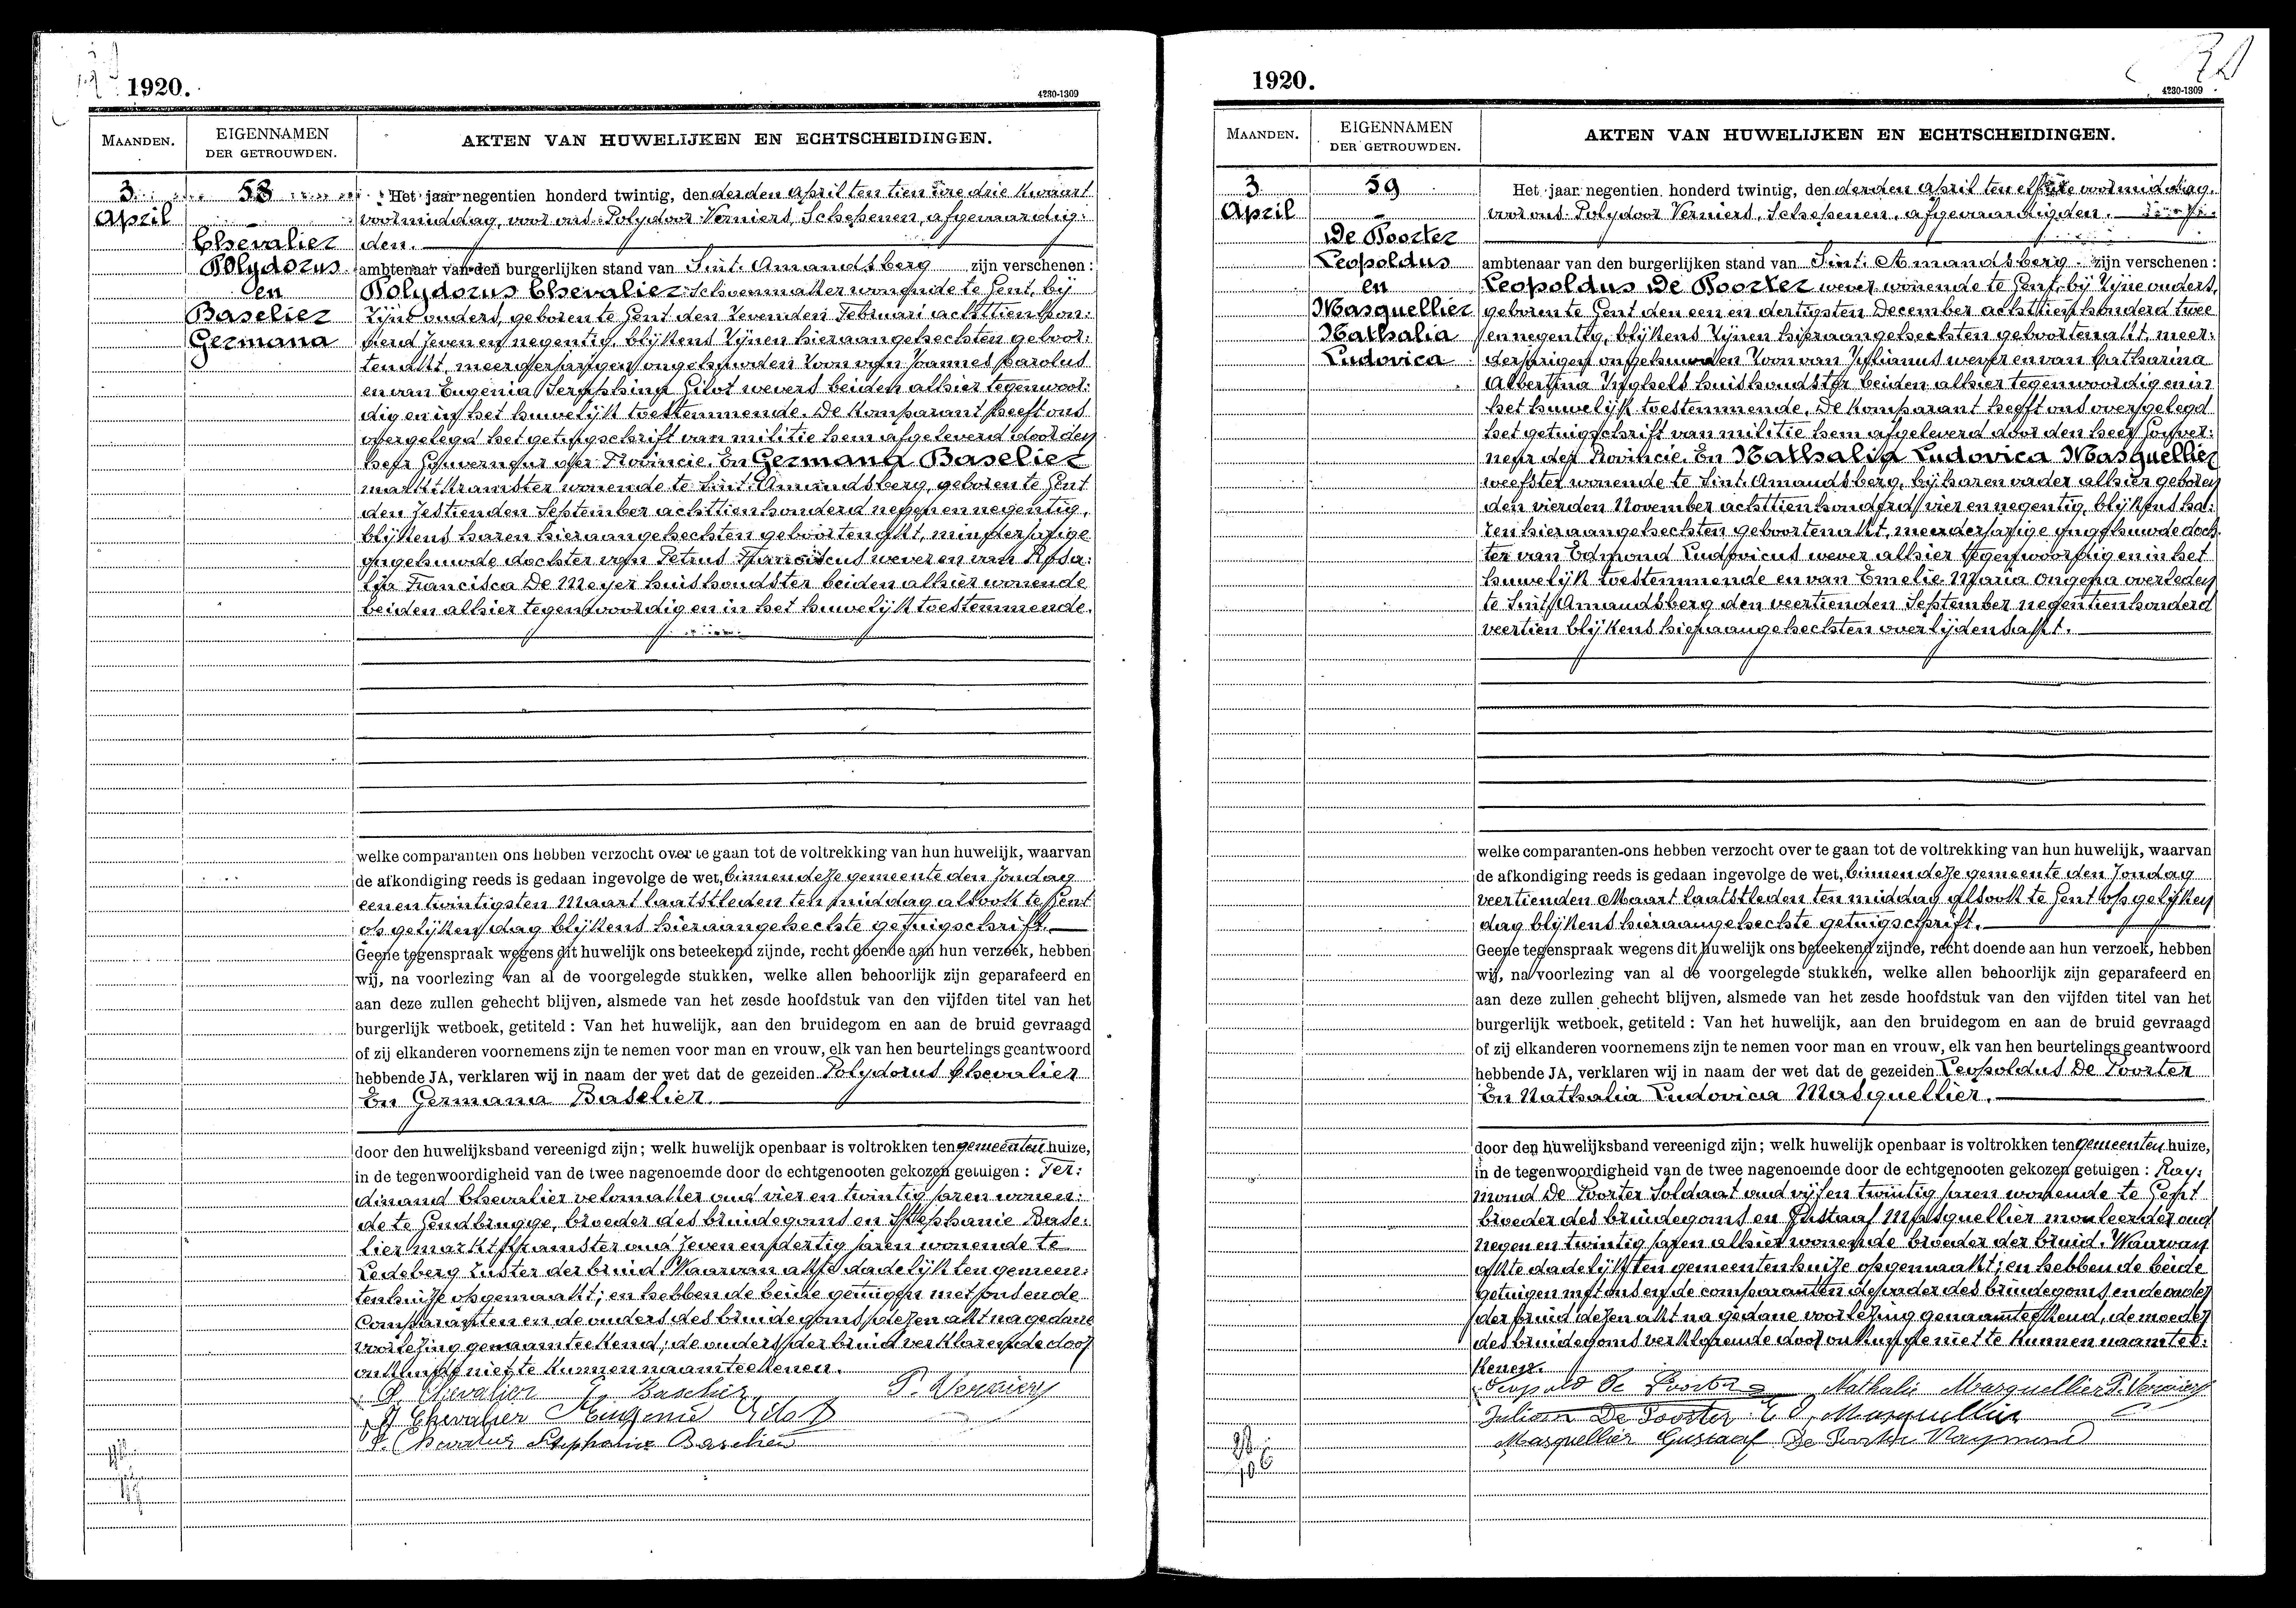 1920.
4230-1309
MAANDEN.
EIGENNAMEN
DER GETROUWDEN.
AKTEN VAN HUWELIJKEN EN ECHTSCHEIDINGEN.
3
April
58
Chevalier
Polydorus
en
Baselier
Germana
Het jaar negentien honderd twintig, den derden April ten tien ure drie kwaart
voormiddag, voor ons Polydoor Verniers, Schepenen, afgevaardig:
den.
ambtenaar van den burgerlijken stand van Sint. Amandsberg zijn verschenen :
Polydorus Chevalier Schoenmaker wonende te Gent, bij
zijne ouders, geboren te Gent den zevenden Februari achttien hon:
derd zeven en negentig, blijkens zijnen hieraangehechten geboor:
tenakt, meerderjarigen ongehuwden zoon van Joannes Carolus
en van Eugenia Seraphina Gilot wevers beiden alhier tegenwoor:
dig en in het huwelijk toestemmende. De komparant heeft ons
overgelegd het getuigschrift van militie hem afgeleverd door den
heer Gouverneur der Provincie. En Germana Baselier
marktkramster wonende te Sint. Amandsberg, geboren te Gent
den zestienden September achttien honderd negen en negentig,
blijkens haren hieraangehechten geboortenakt, minderjarige
ongehuwde dochter van Petrus Franciscus wever en van Rosa:
lia Francisca De Meyer huishoudster beiden alhier wonende
beiden alhier tegenwoordig en in het huwelijk toestemmende.
welke comparanten ons hebben verzocht over te gaan tot de voltrekking van hun huwelijk, waarvan
de afkondiging reeds is gedaan ingevolge de wet, binnen deze gemeente den Zondag
een en twintigsten Maart laatstleden ten middag alsook te Gent
op gelijken dag blijkens hieraangehechte getuigschrift.
Geene tegenspraak wegens dit huwelijk ons beteekend zijnde, recht doende aan hun verzoek, hebben
wij, na voorlezing van al de voorgelegde stukken, welke allen behoorlijk zijn geparafeerd en
aan deze zullen gehecht blijven, alsmede van het zesde hoofdstuk van den vijfden titel van het
burgerlijk wetboek, getiteld : Van het huwelijk, aan den bruidegom en aan de bruid gevraagd
of zij elkanderen voornemens zijn te nemen voor man en vrouw, elk van hen beurtelings geantwoord
hebbende JA, verklaren wij in naam der wet dat de gezeiden Polydorus Chevalier
En Germana Baselier.
door den huwelijksband vereenigd zijn; welk huwelijk openbaar is voltrokken ten gemeenten huize,
in de tegenwoordigheid van de twee nagenoemde door de echtgenooten gekozen getuigen : Fer:
dinand Chevalier velomaker oud vier en twintig jaren wonen:
de te Gendbrugge, broeder des bruidegoms en Stephanie Base:
lier marktkramster oud zeven en dertig jaren wonende te
Ledeberg zuster der bruid. Waarvan akte dadelijk ten gemeen:
tenhuize opgemaakt; en hebben de beide getuigen met ons en de
Comparanten en de ouders des bruidegoms dezen akt na gedane
voorlezing genaamteekend; de ouders der bruid verklarende door
onkunde niet te kunnen naamteekenen.
P. Chevalier G. Baselier P. Verniers
J Chevalier Eugenie Gilot
F. Chevalier Stephanie Baselier
1920.
4230-1309
MAANDEN.
EIGENNAMEN
DER GETROUWDEN.
AKTEN VAN HUWELIJKEN EN ECHTSCHEIDINGEN.
3
April
59
De Poorter
Leopoldus
en
Masquellier
Nathalia
Ludovica
Het jaar negentien honderd twintig, den derden April ten elf ure voormiddag.
voor ons Polydoor Verniers, Schepenen, afgevaardigden.
ambtenaar van den burgerlijken stand van Sint. Amandsberg zijn verschenen :
Leopoldus De Poorter wever wonende te Gent, bij zijne ouders,
geboren te Gent den een en dertigsten December achttien honderd twee
en negentig, blijkens zijnen hieraangehechten geboortenakt, meer:
derjarigen ongehuwden zoon van Julianus wever en van Catharina
Albertina Inghels huishoudster beiden alhier tegenwoordig en in
het huwelijk toestemmende. De komparant heeft ons overgelegd
het getuigschrift van militie hem afgeleverd door den heer Gouver:
neur der Provincie. En Nathalia Ludovica Masquellier
weefster wonende te Sint. Amandsberg, bij haren vader alhier geboren
den vierden November achttien honderd vier en negentig, blijkens ha:
ren hieraangehechten geboortenakt, meerderjarige ongehuwde doch:
ter van Edmond Ludovicus wever alhier tegenwoordig en in het
huwelijk toestemmende en van Emelie Maria Ongena overleden
te Sint Amandsberg den veertienden September negentien honderd
veertien blijkens hieraangehechten overlijdensakt.
welke comparanten ons hebben verzocht over te gaan tot de voltrekking van hun huwelijk, waarvan
de afkondiging reeds is gedaan ingevolge de wet, binnen deze gemeente den Zondag
veertienden Maart laatstleden ten middag alsook te Gent op gelijken
dag blijkens hieraangehechte getuigschrift.
Geene tegenspraak wegens dit huwelijk ons beteekend zijnde, recht doende aan hun verzoek, hebben
wij, na voorlezing van al de voorgelegde stukken, welke allen behoorlijk zijn geparafeerd en
aan deze zullen gehecht blijven, alsmede van het zesde hoofdstuk van den vijfden titel van het
burgerlijk wetboek, getiteld : Van het huwelijk, aan den bruidegom en aan de bruid gevraagd
of zij elkanderen voornemens zijn te nemen voor man en vrouw, elk van hen beurtelings geantwoord
hebbende JA, verklaren wij in naam der wet dat de gezeiden Leopoldus De Poorter
En Nathalia Ludovica Masquellier.
door den huwelijksband vereenigd zijn; welk huwelijk openbaar is voltrokken ten gemeenten huize,
in de tegenwoordigheid van de twee nagenoemde door de echtgenooten gekozen getuigen : Ray:
mond De Poorter Soldaat oud vijf en twintig jaren wonende te Gent
broeder des bruidegoms en Gustaaf Masquellier monteerder oud
negen en twintig jaren alhier wonende broeder der bruid. Waarvan
akte dadelijk ten gemeentenhuize opgemaakt; en hebben de beide
getuigen met ons en de comparanten de vader des bruidegoms en de vader
der bruid dezen akt na gedane voorlezing genaamteekend, de moeder
des bruidegoms verklarende door onkunde niet te kunnen naamtee:
kenen.
Leopold De Poorter Nathalie Masquellier P. Verniers
Juliaan De Poorter E. L. Masquellier
Masquellier Gustaaf De Poorter Raymond